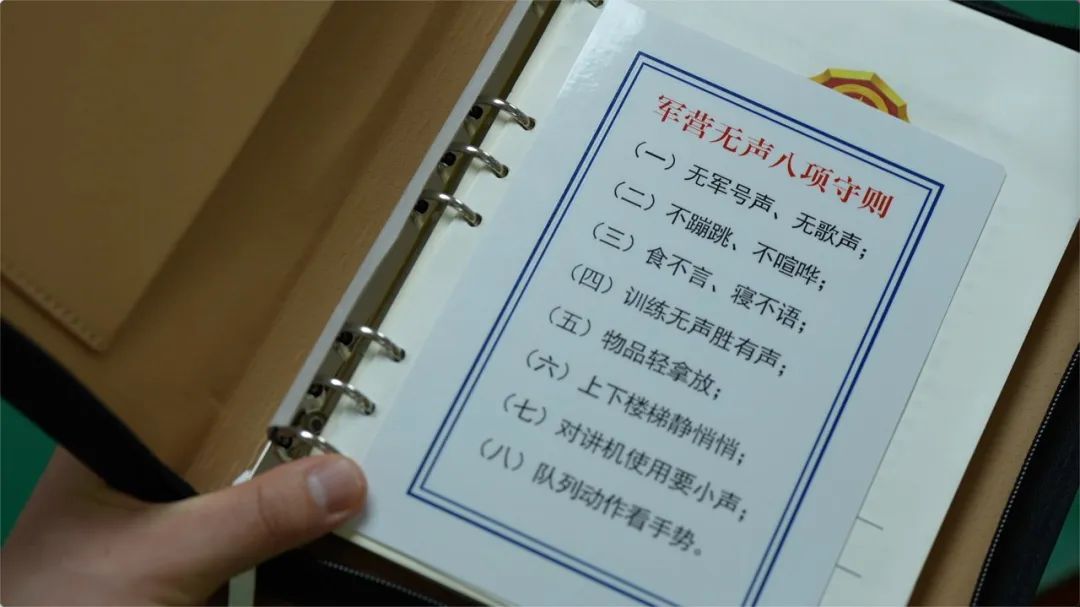 军营无声八项守则
（一）无军号声、无歌声；
（二）不蹦跳、不喧哗；
（三）食不言、寝不语；
（四）训练无声胜有声；
（五）物品轻拿放；
（六）上下楼梯静悄悄；
（七）对讲机使用要小声；
（八）队列动作看手势。